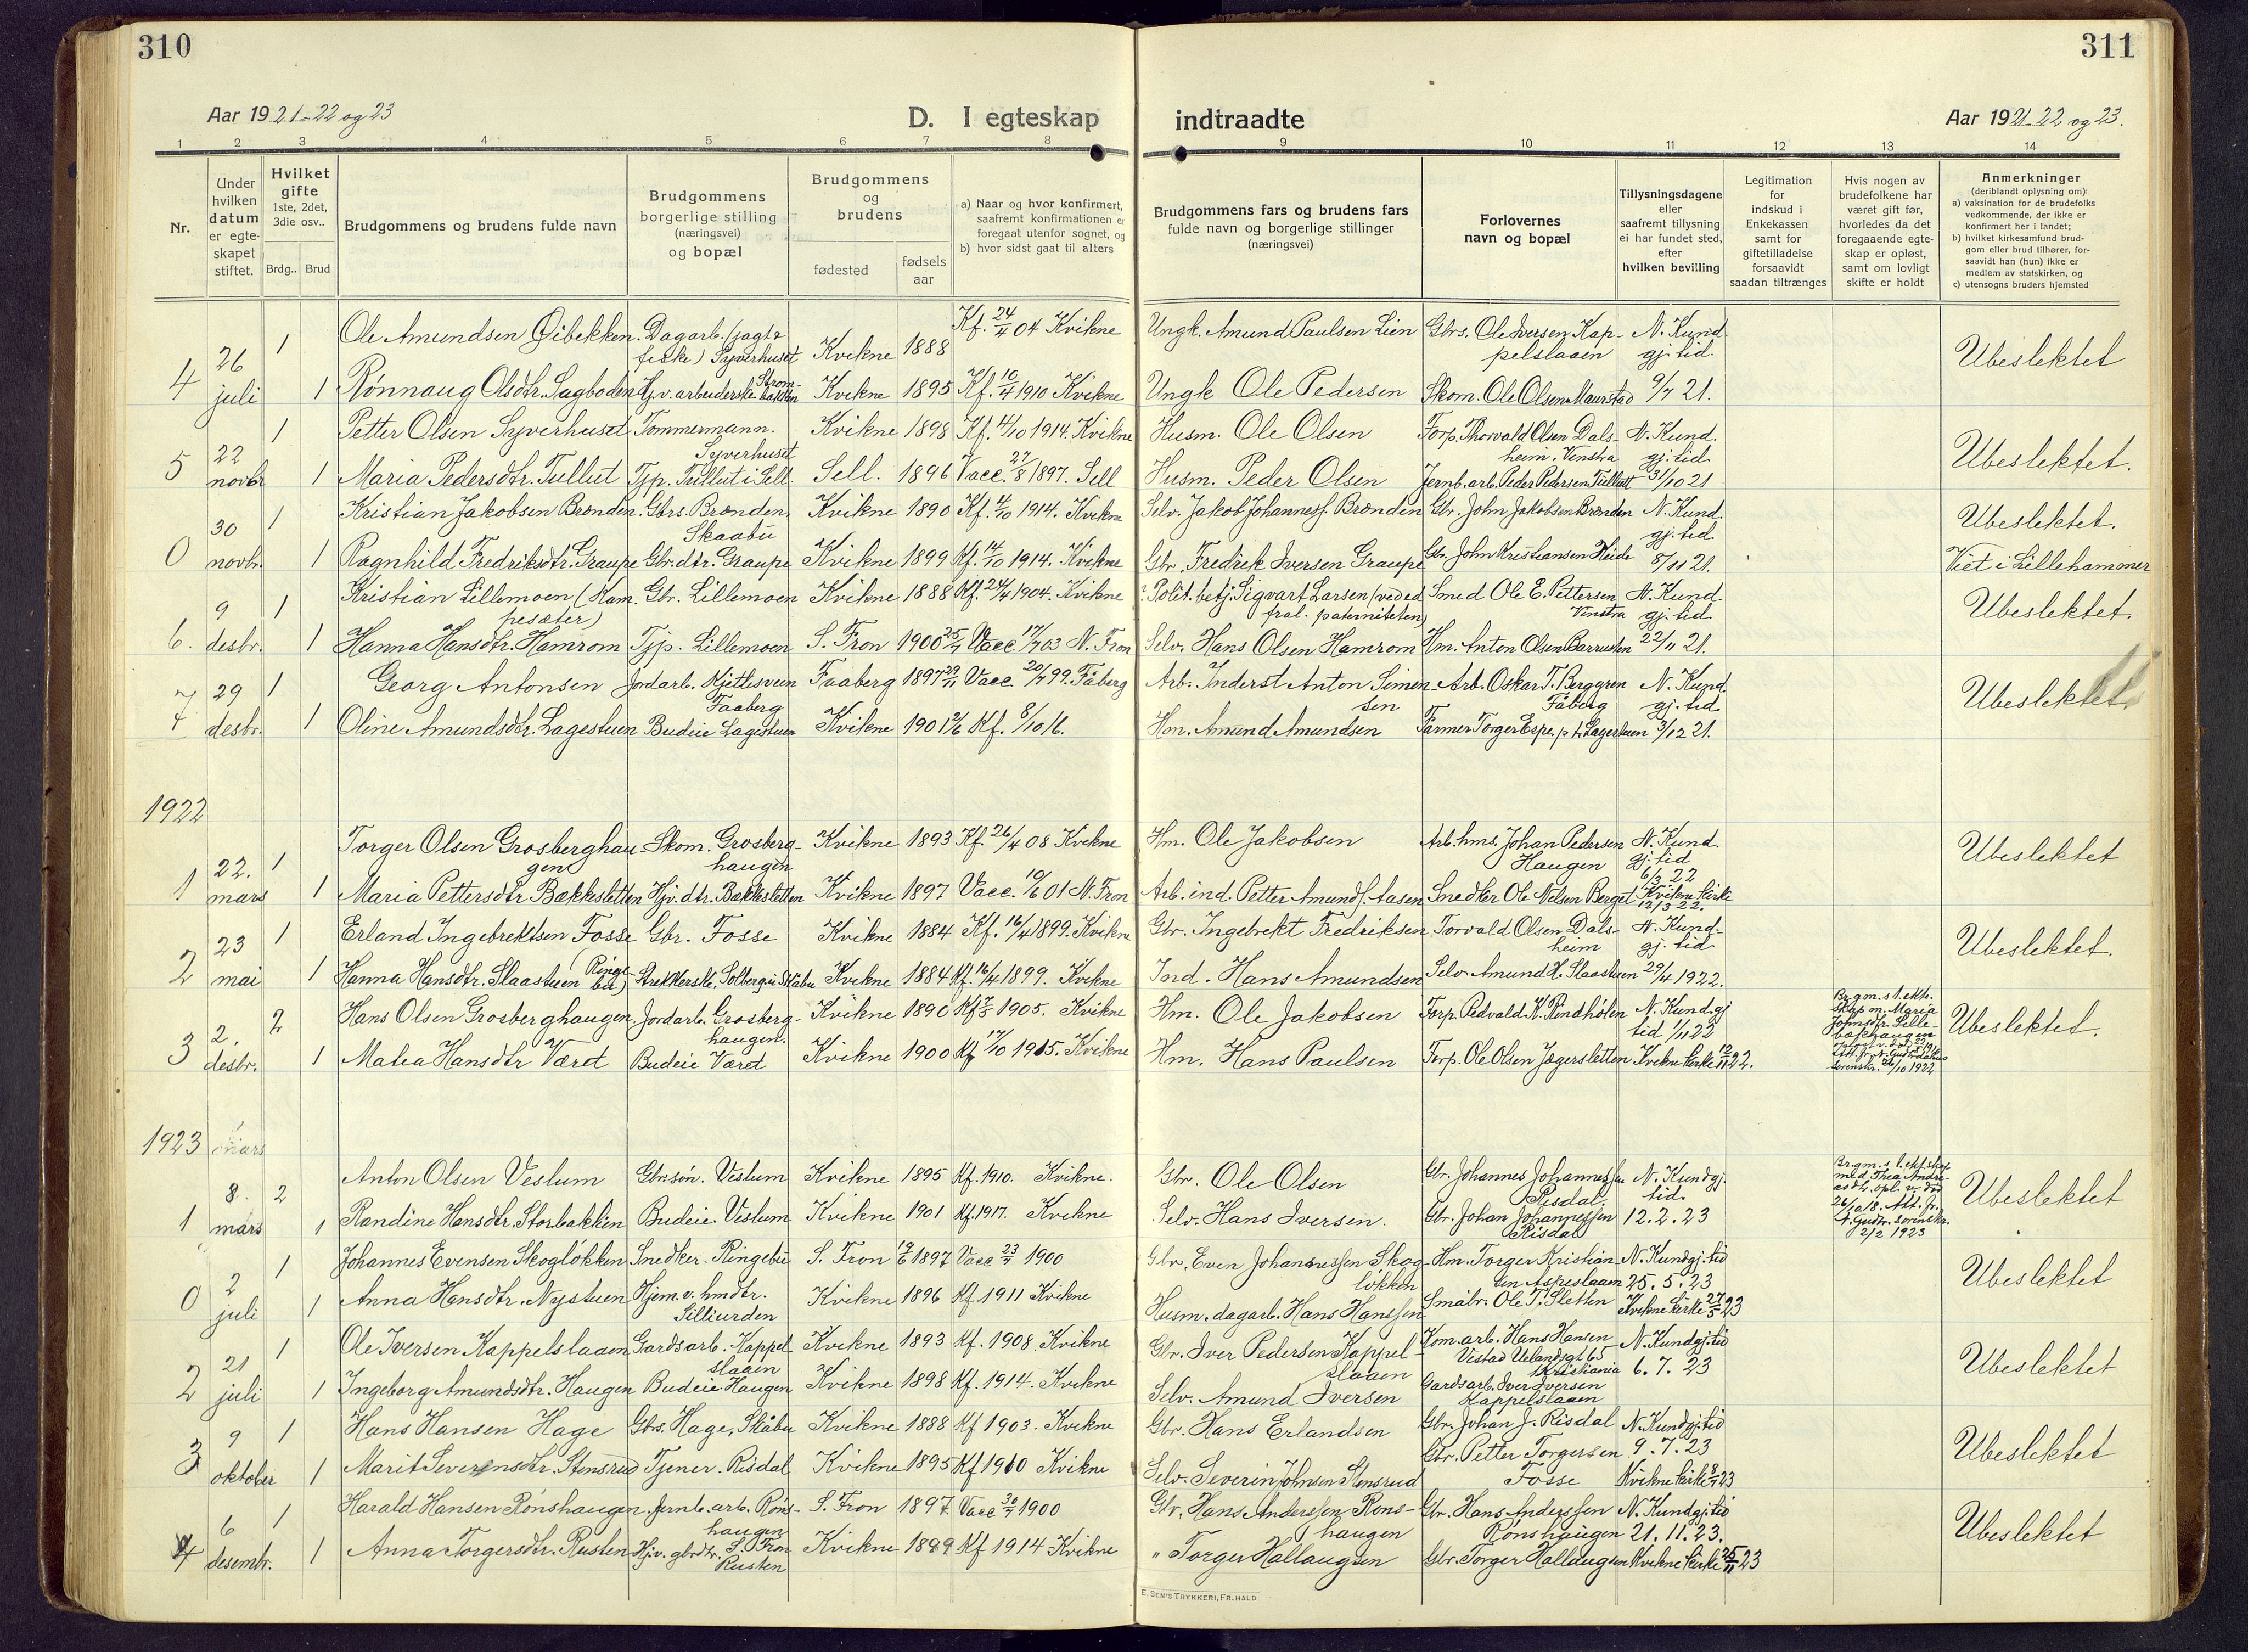 310
311
Aar 1921-22 og 23
D. I egteskap
indtraadte
Aar 1921-22 og 23.
1 2 3 4 5 6 7 8 9 10 11 12 13 14
Nr.
Under hvilken datum er egte- skapet stiftet.
Hvilket gifte
1ste, 2det, 3die osv..
Brdg.. Brud
Brudgommens og brudens fulde navn
Brudgommens borgerlige stilling (næringsvei) og bopæl
Brudgommens og brudens
fødested
fødsels aar
a) Naar og hvor konfirmert, saafremt konfirmationen er foregaat utenfor sognet, og
b) hvor sidst gaat til alters
Brudgommens fars og brudens fars fulde navn og borgerlige stillinger (næringsvei)
Forlovernes navn og bopæl
Tillysningsdagene eller saafremt tillysning ei har fundet sted, efter hvilken bevilling
Legitimation for indskud i Enkekassen samt for giftetilladelse forsaavidt saadan tiltrænges
Hvis nogen av brudefolkene har været gift før, hvorledes da det foregaaende egte- skap er opløst, samt om lovligt skifte er holdt
Anmerkninger
(deriblandt oplysning om):
a) vaksination for de brudefolks vedkommende, der ikke er konfirmert her i landet;
b) hvilket kirkesamfund brud- gom eller brud tilhører, for- saavidt han (hun) ikke er medlem av statskirken, og
c) utensogns bruders hjemsted
4 26 juli 1 Ole Amundsen Øibekken. Dagarb. (jagt & fiske) Syverhuset Kvikne 1888 Kf. 24/4 04 Kvikne Ungk. Amund Paulsen Lien Gbrs. Ole Iversen Kap- pelslaaen N. Kund. gj. tid Ubeslektet
1 Rønnaug Olsdtr. Sagboden Hj.v. arbeiderske Strom- bakken Kvikne 1895 Kf. 10/4 1910 Kvikne Ungk Ole Pedersen Skom. Ole Olsen Maurstad 9/7 21.
5 22 novbr 1 Petter Olsen Syverhuset Tommermann. Syverhuset Kvikne 1898 Kf. 4/10 1914. Kvikne Husm. Ole Olsen Forp. Thorvald Olsen Dals- heim. Vinstra N. Kund. gj. tid Ubeslektet.
1 Maria Pedersdtr. Tullut Tjp. Tullut i Sell Sell. 1896 Vacc. 27/8 1897. Sell Husm. Peder Olsen Jernb.arb. Peder Pedersen Tullutt 31/10 21
0 30 novbr. 1 Kristian Jakobsen Brønden. Gbrs. Brønden, Skaabu Kvikne 1890 Kf. 4/10 1914. Kvikne Selv. Jakob Johanness. Brønden Gbr. John Jakobsen Brønden N. Kund. gj. tid Ubeslektet.
1 Ragnhild Fredriksdtr. Graupe Gbr.dtr. Graupe Kvikne 1899 Kf. 14/10 1914. Kvikne Gbr. Fredrik Iversen Graupe Gbr. John Kristiansen Heide 8/11 21. Viet i Lillehammer
6. 9 desbr. 1 Kristian Lillemoen (Kam- pesæter) Gbr. Lillemoen Kvikne 1888 Kf. 24/4 1904. Kvikne Polit.betj. Sigvart Larsen (ved ed fral. paterniteten) Smed Ole E. Pettersen Vinstra N. Kund. gj. tid Ubeslektet.
1 Hanna Hansdtr. Hamrom Tjp. Lillemoen S. Fron 1900 25/7 Vacc 17/7 03 N. Fron Selv. Hans Olsen Hamrom Hm. Anton Olsen Barrusten 22/11 21.
7 29 desbr. 1 Georg Antonsen Jordarb. Kjettisveen Faaberg Faaberg 1897 29/11 Vacc. 20/7 99. Fåberg Arb. Inderst Anton Simen- sen Arb. Oskar T. Berggren Fåberg N. Kund gj. tid Ubeslektet
1 Oline Amundsdtr. Lagestuen Budeie Lagestuen Kvikne 1901 2/6 Kf. 8/10 16. Hm. Amund Amundsen Farmer Torger Espe, p. t. Lagestuen 3/12 21.
1922
1 22. mars 1 Torger Olsen Grosberghau- gen Skom. Grosberg- haugen Kvikne 1893 Kf. 26/4 08 Kvikne Hm. Ole Jakobsen Arb.hms. Johan Pedersen Haugen N. Kund. gj. tid 6/3 22 Ubeslektet
1 Maria Pettersdtr Bækkesletten Hjv. dtr. Bækkesletten Kvikne 1897 Vacc. 10/6 01 N. Fron Arb. ind. Petter Amunds. Aasen Snedker Ole Nelsen Berget Kvikne Kirke 12/3 22.
2 23 mai 1 Erland Ingebrektsen Fosse Gbr. Fosse Kvikne 1884 Kf. 16/4 1899. Kvikne Gbr. Ingebrekt Fredriksen Torvald Olsen Dals- heim N. Kund- gj. tid Ubeslektet.
1 Hanna Hansdtr. Slaastuen (Ringe- bu) Strekkerske, Solberg i Skåbu Kvikne 1884 Kf. 16/4 1899. Kvikne Ind. Hans Amundsen Selv. Amund H. Slaastuen 29/4 1922.
3 2. desbr. 2 Hans Olsen Grosberghaugen. Jordarb. Grosberg- haugen. Kvikne 1890 Kf 7/5 1905. Kvikne Hm. Ole Jakobsen Forp. Pedvald K. Rindhølen N. Kund.gj tid 1/11 22 Brgm.s 1. ekte- skap m. Maria Johnsdtr. Lille- Ubeslektet.
1 Matea Hansdtr Været Budeie Været Kvikne 1900 Kf 17/10 1915. Kvikne Hm. Hans Paulsen Forp. Ole Olsen Jægersletten Kvikne kirke 12/11 22. sorenskr. 26/10 1922
1923
mars
1 8. mars 2 Anton Olsen Veslum Gbr.søn. Veslum Kvikne 1895 Kf. 1910. Kvikne. Gbr. Ole Olsen Gbr. Johannes Johannessen Risdal N. Kundgj. tid. Brgm.s 1. ektskap med Thea Andre- asdtr. opl. v. død 26/10 18. Att. fr. N. Gudbr. sorenskr. 2/2 1923 Ubeslektet
1 Randine Hansdtr. Storbakken Budeie. Veslum Kvikne 1901 Kf. 1917. Kvikne Selv. Hans Iversen. Gbr. Johan Johannessen Risdal 12.2.23
0 2 juli 1 Johannes Evensen Skogløkken Snedker. Ringebu S. Fron 19/6 1897 Vacc 23/7 1900 Gbr. Even Johannessen Skog- løkken Hm. Torger Kristian- sen Aspeslaaen N. Kundgj. tid 25.5.23 Ubeslektet
1 Anna Hansdtr. Nystuen Hjem.v. hmdtr. Silliurden Kvikne 1896 Kf. 1911 Kvikne Husm. dagarb. Hans Hanssen Småbr. Ole T. Sletten Kvikne kirke 27/5 23
2 21 juli 1 Ole Iversen Kappelslaaen Gardsarb. Kappel slaaen Kvikne 1893 Kf. 1908. Kvikne Gbr. Iver Pedersen Kappel- slaaen Kom.arb. Hans Hansen Vestad Uelandsgt 65 Kristiania N. Kundgj. tid 6.7.23 Ubeslektet
1 Ingeborg Amundsdtr. Haugen Budeie Haugen Kvikne 1898 Kf. 1914. Kvikne Selv. Amund Iversen Gardsarb. Iver Iversen Kappelslaaen
3 9 oktober 1 Hans Hansen Hage Gbs. Hage, Skåbu Kvikne 1888 Kf 1903. Kvikne Gbr. Hans Erlandsen Gbr. Johan J. Risdal N. Kundgj. tid Ubeslektet
1 Marit Severinsdtr. Stensrud Tjener. Risdal Kvikne 1895 Kf 1910 Kvikne Selv. Severin Johnsen Stensrud Gbr. Petter Torgersen Fosse 9.7.23 Kvikne kirke 8/7 23
4 6 desembr. 1 Harald Hansen Rønshaugen Jernb.arb. Røns- haugen S. Fron S. Fron 1897 Vacc 30/7 1900 Gbr. Hans Anderssen Røns- haugen Gbr. Hans Anderssen Rønshaugen N. Kundgj. tid 21.11.23. Ubeslektet
1 Anna Torgersdtr. Rusten Hjv. gbrdtr. Rusten Kvikne 1899 Kf 1914 Kvikne " Torger Hallaugsen Gbr. Torger Hallaugsen Kvikne kirke 25/11 23
E. SEM'S TRYKKERI, FR.HALD